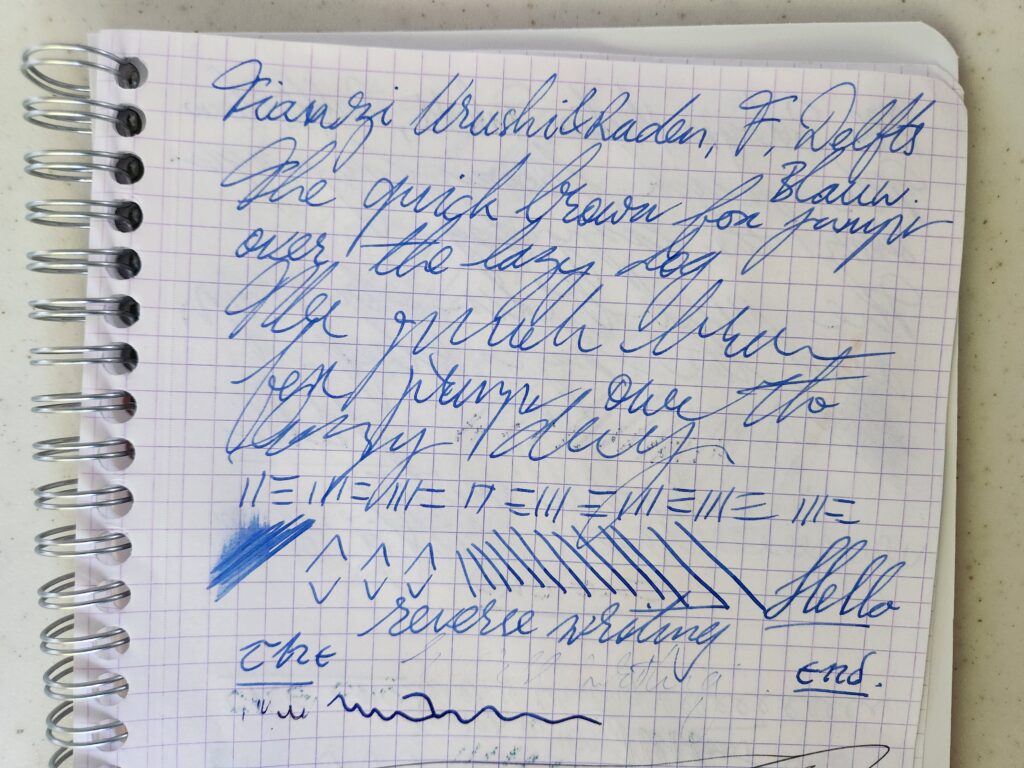 Tianzi Urushi&Raden, F, Delfts
Blauw.
The quick brown fox jumps
over the lazy dog
The quick brown
fox jumps over the
lazy dog
Hello
reverse writing
The
end.